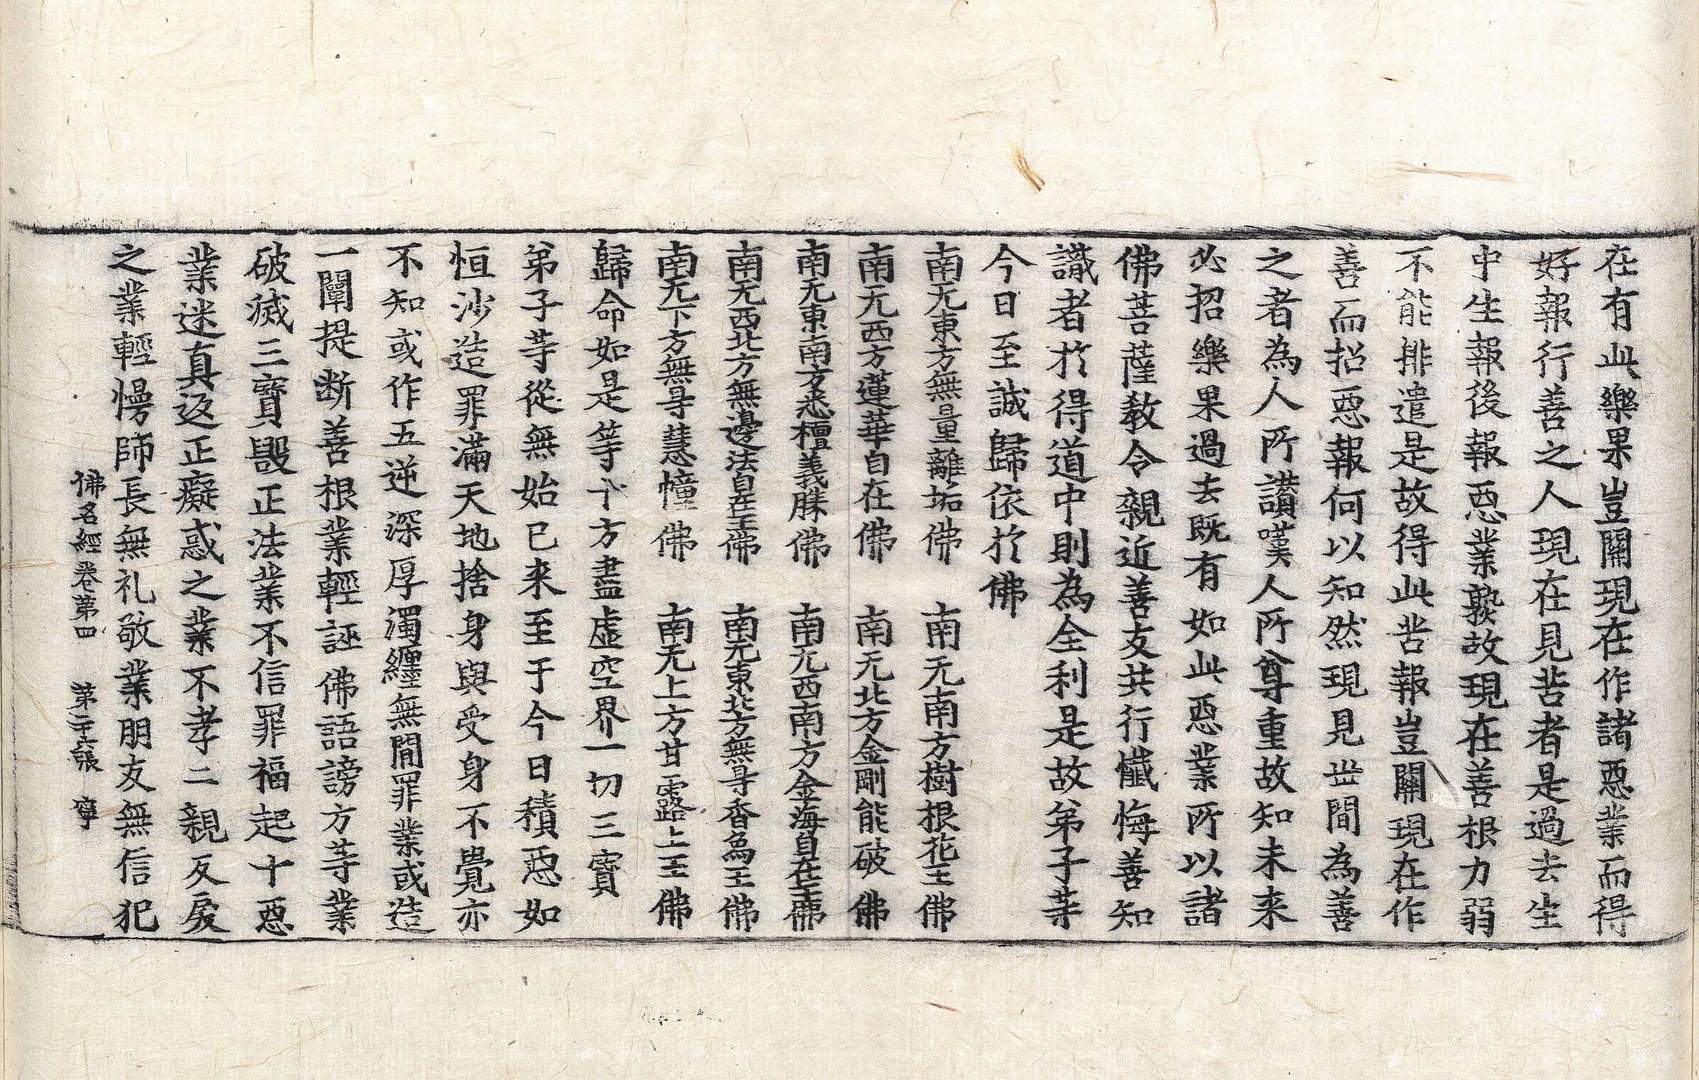 在有此樂果豈關現在作諸惡業而得
好報行善之人現在見苦者是過去生
中生報後報惡業熟故現在善根力弱
不能排遣是故得此苦報豈關現在作
善而招惡報何以知然現見世間為善
之者為人所讃嘆人所尊重故知未来
必招樂果過去既有如此惡業所以諸
佛菩薩教令親近善友共行懺悔善知
識者於得道中則為全利是故弟子等
今日至誠歸依於佛
南无東方無量離垢佛　南无南方樹根花王佛
南无西方蓮華自在佛　南无北方金剛能破佛
南无東南方悉檀義勝佛　南无西南方金海自在王佛
南无西北方無邊法自在王佛　南无東北方無㝵香為王佛
南无下方無㝵慧幢佛　南无上方甘露上王佛
歸命如是等十方盡虛空界一切三寶
弟子等從無始已来至于今日積惡如
恒沙造罪滿天地捨身與受身不覺亦
不知或作五逆深厚濁纏無間罪業或造
一闡提断善根業輕誣佛語謗方等業
破滅三寶毀正法業不信罪福起十惡
業迷真返正癡惑之業不孝二親反戾
之業輕慢師長無礼敬業朋友無信犯
佛名經卷第四　第二十六張　寧